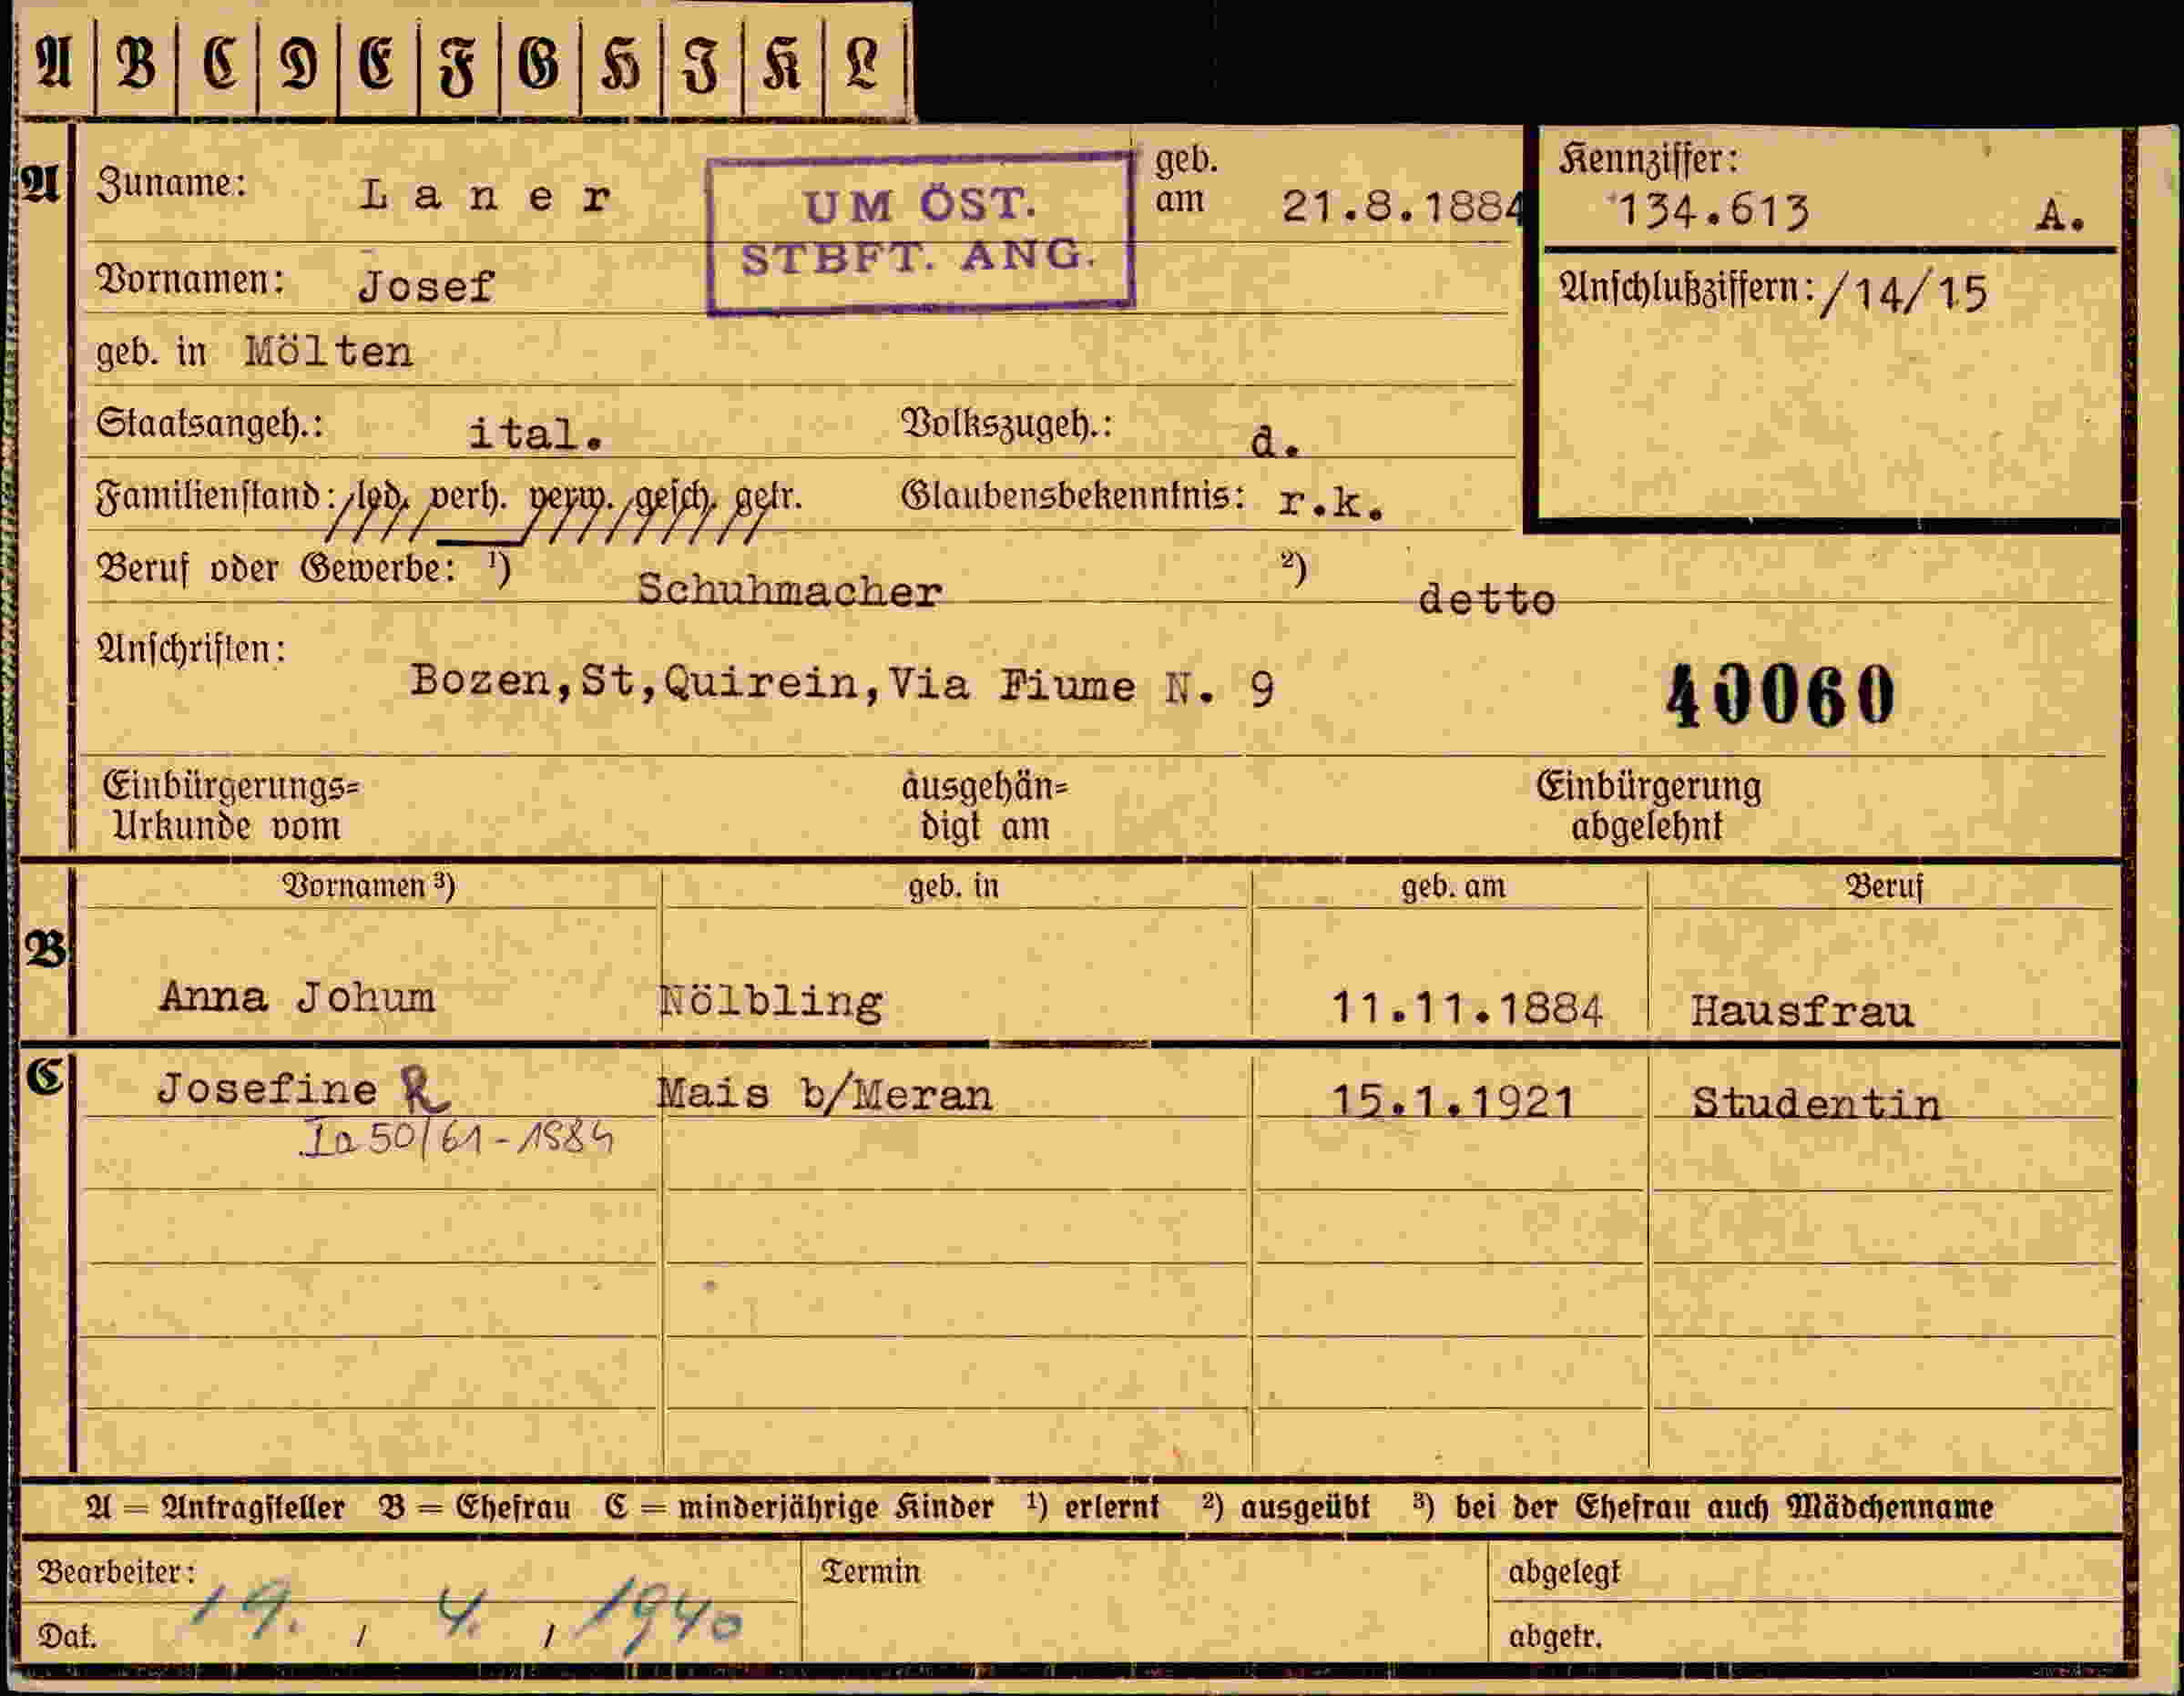 A B C D E F G H I K L
A Zuname: Laner UM ÖST. STBFT. ANG. geb. am 21.8.1884 Kennziffer: 134.613 A.
Vornamen: Josef Anschlußziffern: /14/15
geb. in Mölten
Staatsangeh.: ital. Volkszugeh.: d.
Familienstand: led. verh. verw. gesch. getr. Glaubensbekenntnis: r.k.
Beruf oder Gewerbe: ¹) Schuhmacher ²) detto
Anschriften: Bozen,St,Quirein,Via Fiume N. 9 40060
Einbürgerungs= ausgehän= Einbürgerung
Urkunde vom digt am abgelehnt
Vornamen ³) geb. in geb. am Beruf
B Anna Johum Nölbling 11.11.1884 Hausfrau
C Josefine R Mais b/Meran 15.1.1921 Studentin
Ia 50/61-1984
A = Antragsteller B = Ehefrau C = minderjährige Kinder ¹) erlernt ²) ausgeübt ³) bei der Ehefrau auch Mädchenname
Bearbeiter: Termin abgelegt
Dat. 19. / 4. / 1940 abgetr.